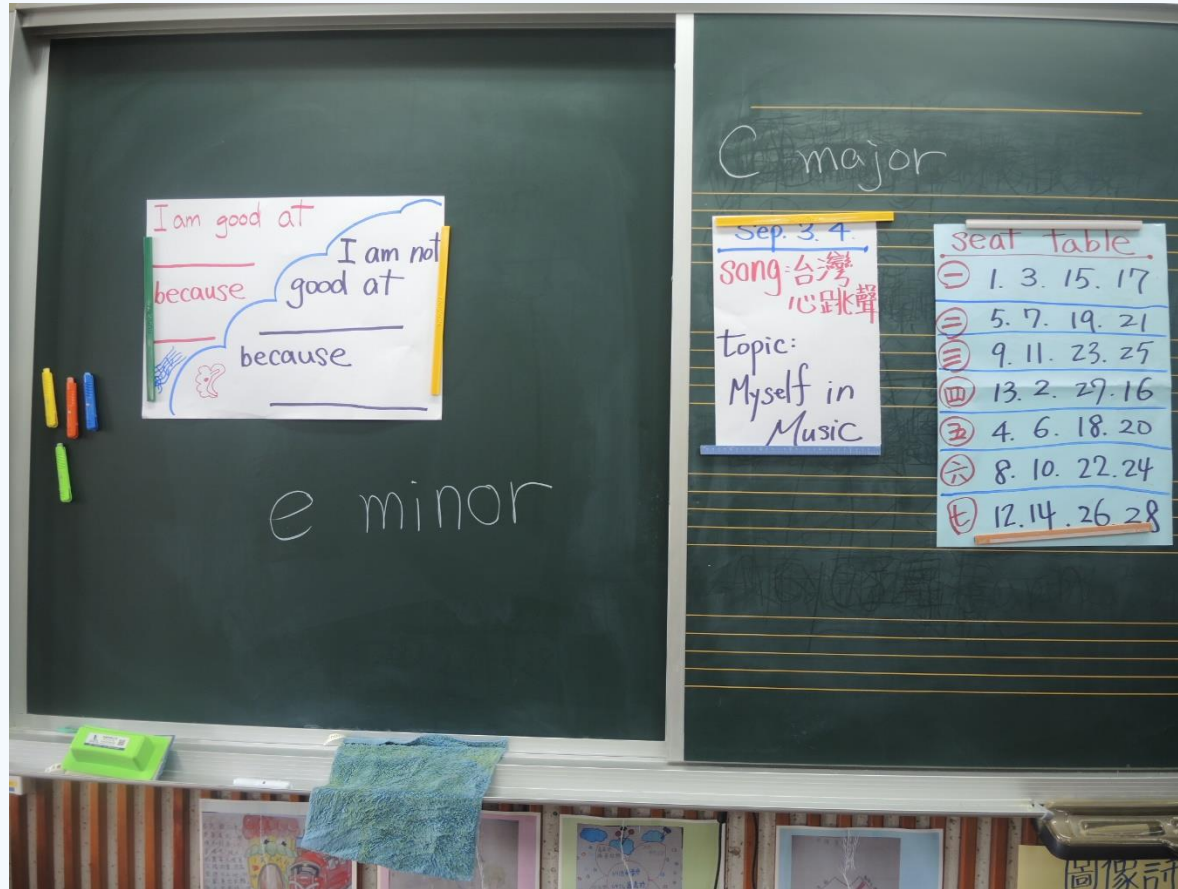 I am good at
because
I am not
good at
because
e minor
C major
Sep. 3. 4.
song:台灣
心跳聲
topic:
Myself in
Music
seat table
一 1. 3. 15. 17
二 5. 7. 19. 21
三 9. 11. 23. 25
四 13. 2. 27. 16
五 4. 6. 18. 20
六 8. 10. 22. 24
七 12. 14. 26. 28
圖像詩